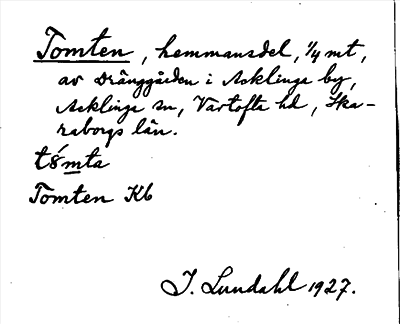 Tomten, hemmansdel, 1/4 mt,
av Dränggården i Acklinga by,
Acklinga sn, Vartofta hd, Ska-
raborgs län.
tómta
Tomten Kb
J. Lundahl 1927.